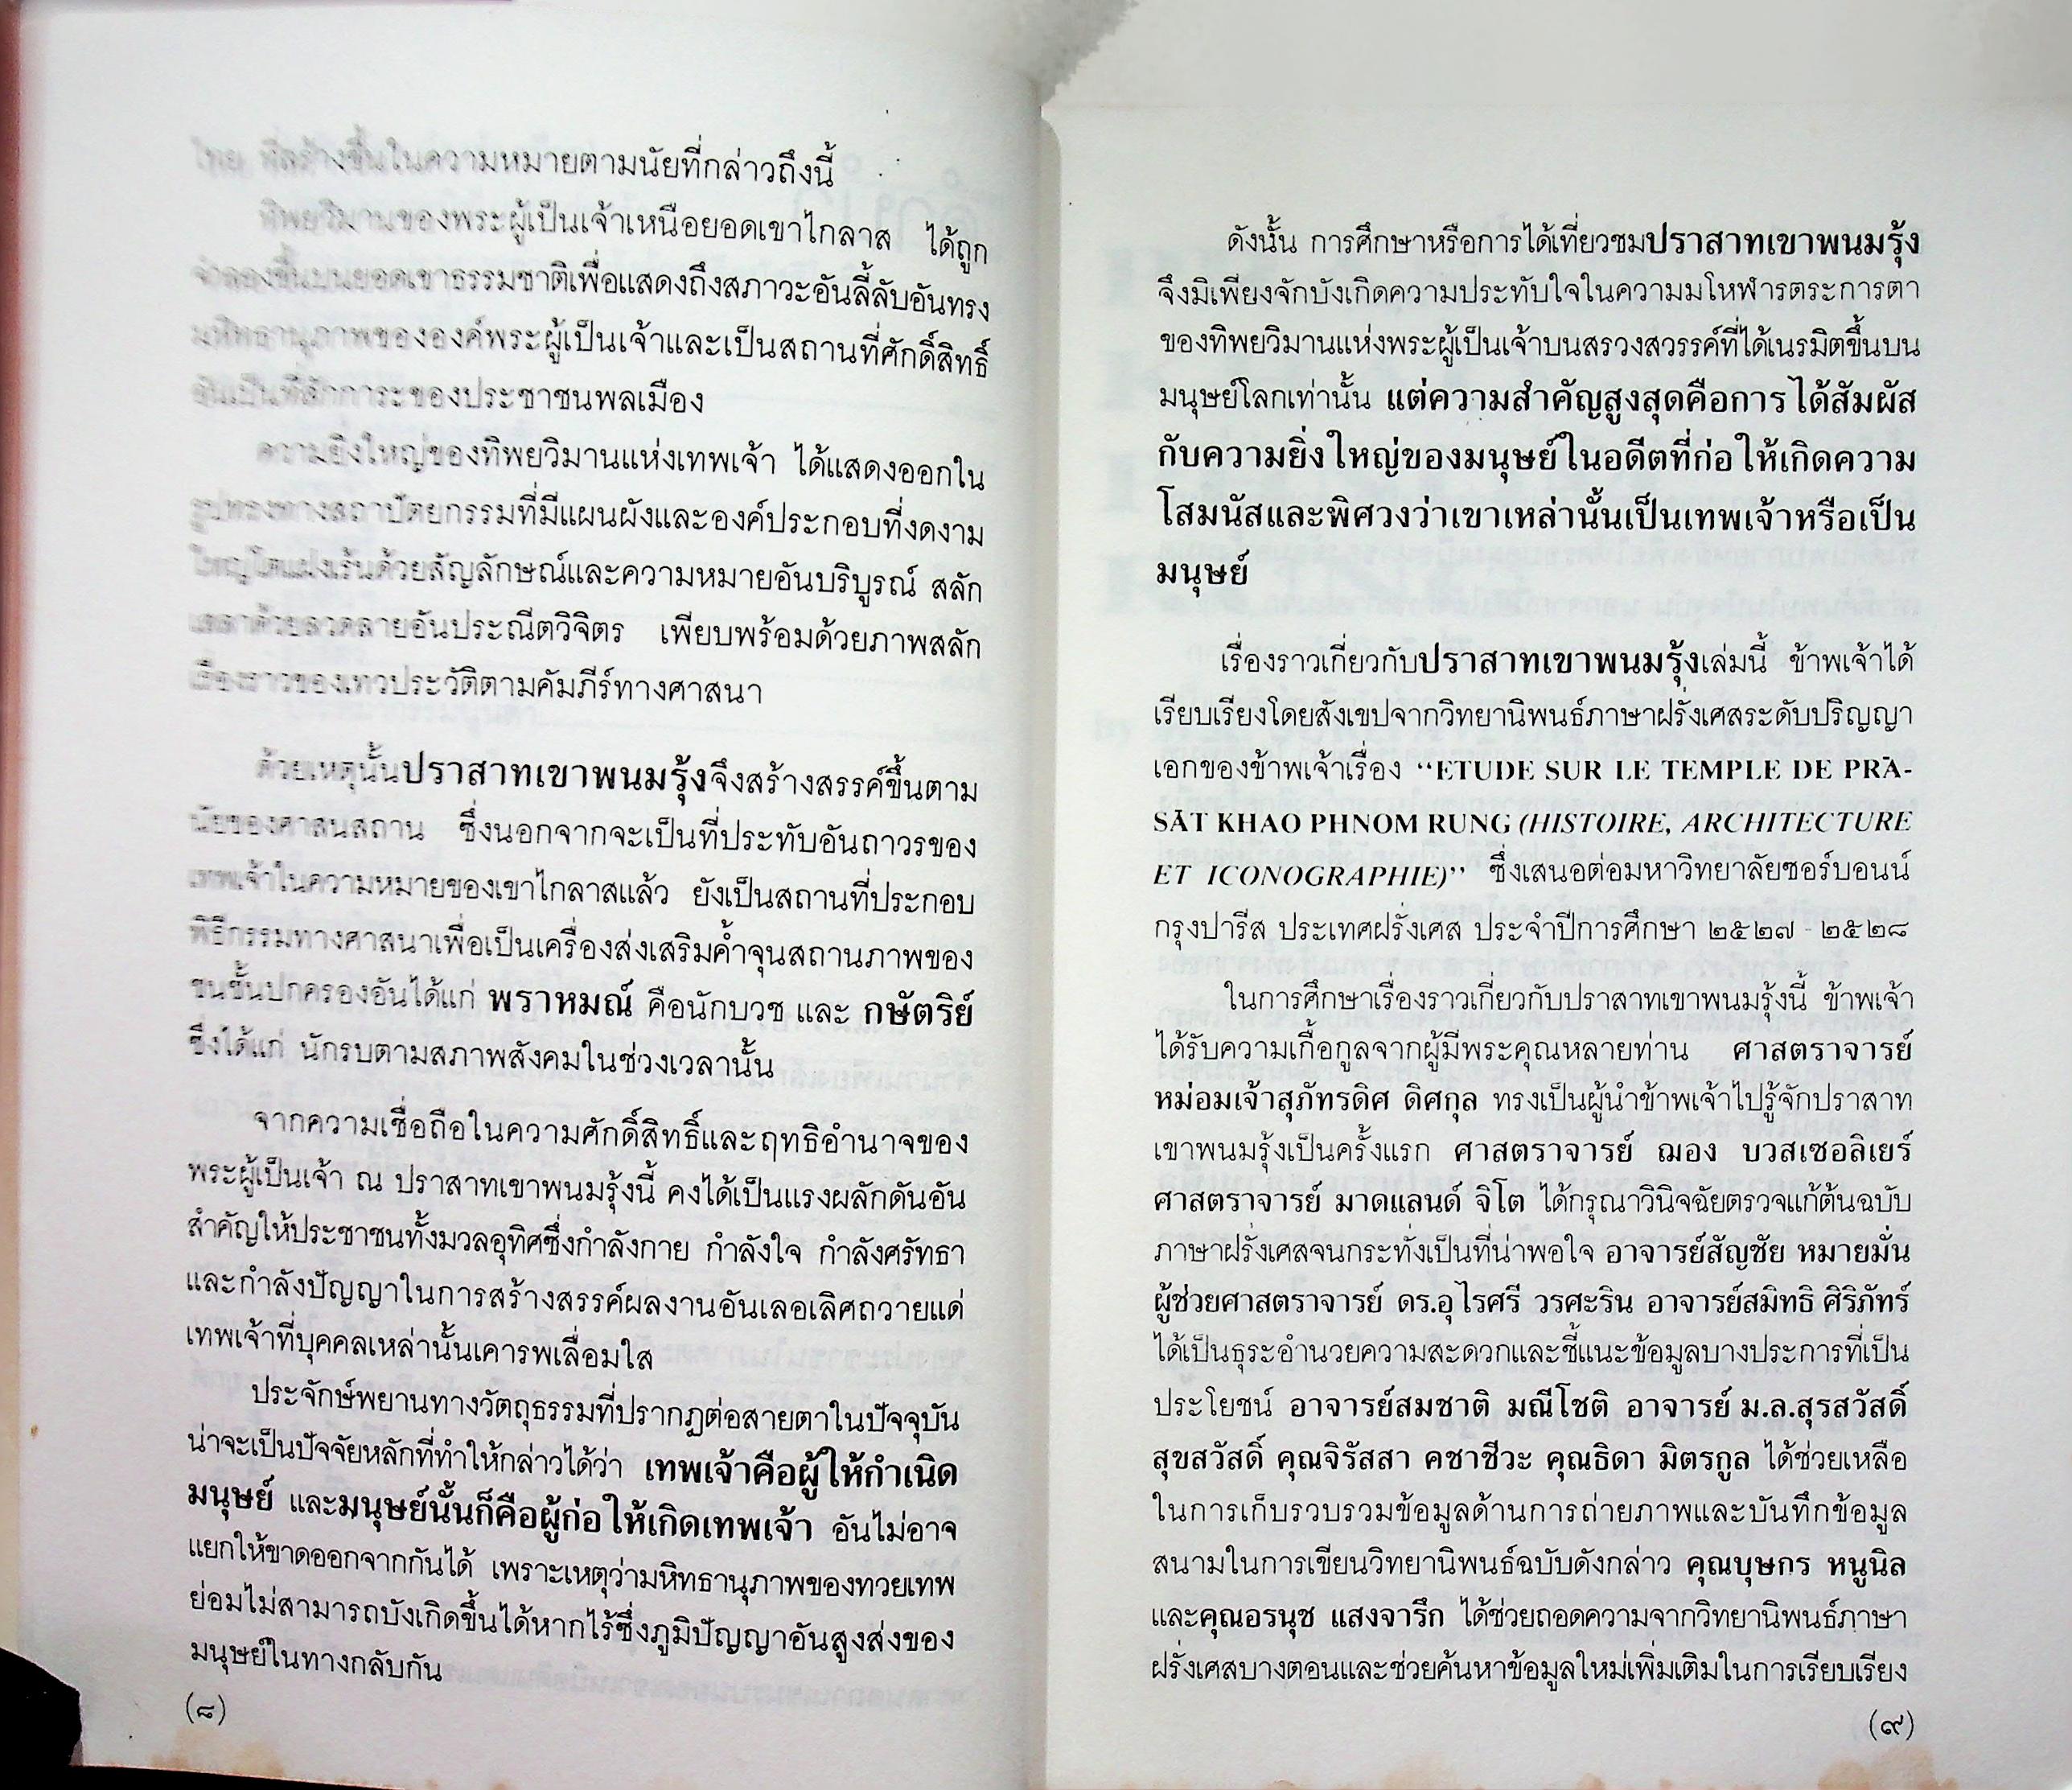 ไทย ที่สร้างขึ้นในความหมายตามนัยที่กล่าวถึงนี้
ทิพยวิมานของพระผู้เป็นเจ้าเหนือยอดเขาไกลาส ได้ถูก
จำลองขึ้นบนยอดเขาธรรมชาติเพื่อแสดงถึงสภาวะอันลี้ลับอันทรง
มหิทธานุภาพขององค์พระผู้เป็นเจ้าและเป็นสถานที่ศักดิ์สิทธิ์
อันเป็นที่สักการะของประชาชนพลเมือง
ความยิ่งใหญ่ของทิพยวิมานแห่งเทพเจ้า ได้แสดงออกใน
รูปทรงทางสถาปัตยกรรมที่มีแผนผังและองค์ประกอบที่งดงาม
ใหญ่โตแฝงเร้นด้วยสัญลักษณ์และความหมายอันบริบูรณ์ สลัก
เสลาด้วยลวดลายอันประณีตวิจิตร เพียบพร้อมด้วยภาพสลัก
เรื่องราวของเทวประวัติตามคัมภีร์ทางศาสนา
ด้วยเหตุนั้นปราสาทเขาพนมรุ้งจึงสร้างสรรค์ขึ้นตาม
นัยของศาสนสถาน ซึ่งนอกจากจะเป็นที่ประทับอันถาวรของ
เทพเจ้าในความหมายของเขาไกลาสแล้ว ยังเป็นสถานที่ประกอบ
พิธีกรรมทางศาสนาเพื่อเป็นเครื่องส่งเสริมค้ำจุนสถานภาพของ
ชนชั้นปกครองอันได้แก่ พราหมณ์ คือนักบวช และ กษัตริย์
ซึ่งได้แก่ นักรบตามสภาพสังคมในช่วงเวลานั้น
จากความเชื่อถือในความศักดิ์สิทธิ์และฤทธิอำนาจของ
พระผู้เป็นเจ้า ณ ปราสาทเขาพนมรุ้งนี้ คงได้เป็นแรงผลักดันอัน
สำคัญให้ประชาชนทั้งมวลอุทิศซึ่งกำลังกาย กำลังใจ กำลังศรัทธา
และกำลังปัญญาในการสร้างสรรค์ผลงานอันเลอเลิศถวายแด่
เทพเจ้าที่บุคคลเหล่านั้นเคารพเลื่อมใส
ประจักษ์พยานทางวัตถุธรรมที่ปรากฏต่อสายตาในปัจจุบัน
น่าจะเป็นปัจจัยหลักที่ทำให้กล่าวได้ว่า เทพเจ้าคือผู้ให้กำเนิด
มนุษย์ และมนุษย์นั้นก็คือผู้ก่อให้เกิดเทพเจ้า อันไม่อาจ
แยกให้ขาดออกจากกันได้ เพราะเหตุว่ามหิทธานุภาพของทวยเทพ
ย่อมไม่สามารถบังเกิดขึ้นได้หากไร้ซึ่งภูมิปัญญาอันสูงส่งของ
มนุษย์ในทางกลับกัน
(๘)
ดังนั้น การศึกษาหรือการได้เที่ยวชมปราสาทเขาพนมรุ้ง
จึงมิเพียงจักบังเกิดความประทับใจในความมโหฬารตระการตา
ของทิพยวิมานแห่งพระผู้เป็นเจ้าบนสรวงสวรรค์ที่ได้เนรมิตขึ้นบน
มนุษย์โลกเท่านั้น แต่ความสำคัญสูงสุดคือการได้สัมผัส
กับความยิ่งใหญ่ของมนุษย์ในอดีตที่ก่อให้เกิดความ
โสมนัสและพิศวงว่าเขาเหล่านั้นเป็นเทพเจ้าหรือเป็น
มนุษย์
เรื่องราวเกี่ยวกับปราสาทเขาพนมรุ้งเล่มนี้ ข้าพเจ้าได้
เรียบเรียงโดยสังเขปจากวิทยานิพนธ์ภาษาฝรั่งเศสระดับปริญญา
เอกของข้าพเจ้าเรื่อง “ETUDE SUR LE TEMPLE DE PRĀ-
SĀT KHAO PHNOM RUNG (HISTOIRE, ARCHITECTURE
ET ICONOGRAPHIE)” ซึ่งเสนอต่อมหาวิทยาลัยซอร์บอนน์
กรุงปารีส ประเทศฝรั่งเศส ประจำปีการศึกษา ๒๕๒๗ - ๒๕๒๘
ในการศึกษาเรื่องราวเกี่ยวกับปราสาทเขาพนมรุ้งนี้ ข้าพเจ้า
ได้รับความเกื้อกูลจากผู้มีพระคุณหลายท่าน ศาสตราจารย์
หม่อมเจ้าสุภัทรดิศ ดิศกุล ทรงเป็นผู้นำข้าพเจ้าไปรู้จักปราสาท
เขาพนมรุ้งเป็นครั้งแรก ศาสตราจารย์ ฌอง บวสเซอลิเยร์
ศาสตราจารย์ มาดแลนด์ จิโต ได้กรุณาวินิจฉัยตรวจแก้ต้นฉบับ
ภาษาฝรั่งเศสจนกระทั่งเป็นที่น่าพอใจ อาจารย์สัญชัย หมายมั่น
ผู้ช่วยศาสตราจารย์ ดร.อุไรศรี วรศะริน อาจารย์สมิทธิ ศิริภัทร์
ได้เป็นธุระอำนวยความสะดวกและชี้แนะข้อมูลบางประการที่เป็น
ประโยชน์ อาจารย์สมชาติ มณีโชติ อาจารย์ ม.ล.สุรสวัสดิ์
สุขสวัสดิ์ คุณจิรัสสา คชาชีวะ คุณธิดา มิตรกูล ได้ช่วยเหลือ
ในการเก็บรวบรวมข้อมูลด้านการถ่ายภาพและบันทึกข้อมูล
สนามในการเขียนวิทยานิพนธ์ฉบับดังกล่าว คุณบุษกร หนูนิล
และคุณอรนุช แสงจารึก ได้ช่วยถอดความจากวิทยานิพนธ์ภาษา
ฝรั่งเศสบางตอนและช่วยค้นหาข้อมูลใหม่เพิ่มเติมในการเรียบเรียง
(๙)